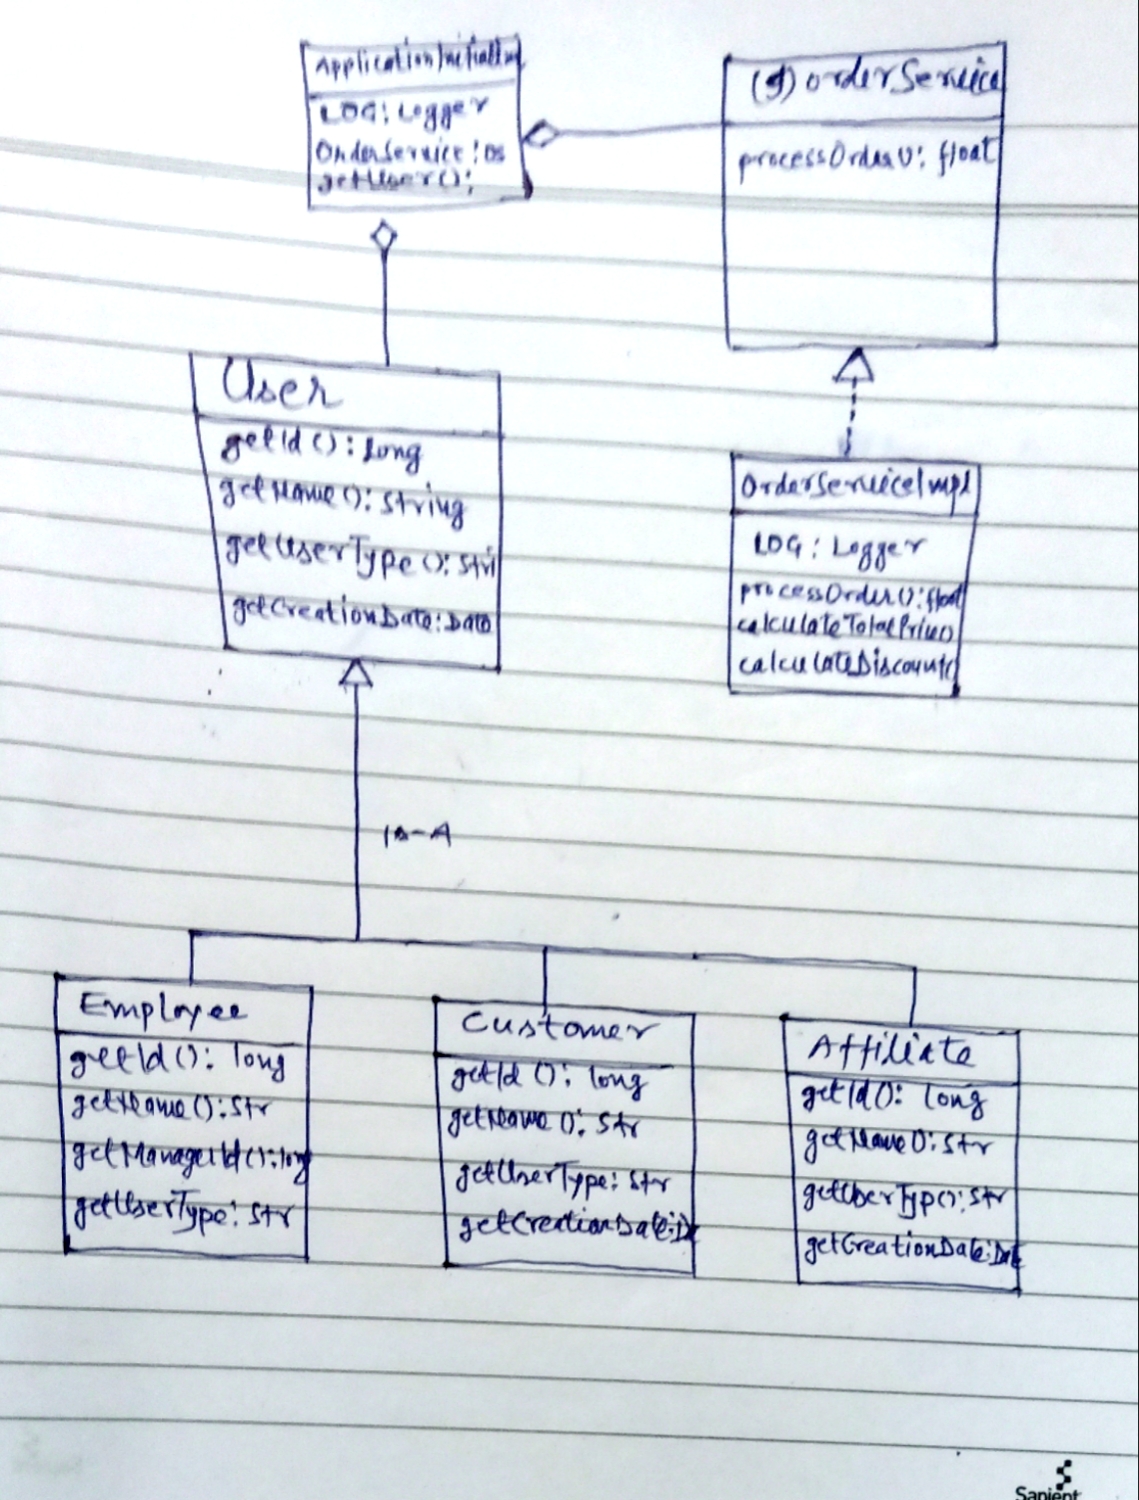 LOG: Logger
OrderService: os
getUser():
(I) OrderService
processOrder(): float
User
getId(): Long
getName(): String
getUserType(): Stri
getCreationDate: Date
OrderServiceImpl
LOG: Logger
processOrder(): float
calculateTotalPrice()
calculateDiscount(
IS-A
Employee
getId(): long
getName(): Str
getManagerId(): long
getUserType: Str
Customer
getId(): long
getName(): Str
getUserType: Str
getCreationDate:
Affiliate
getId(): Long
getName(): Str
getUserTyp(): Str
getCreationDate: Date
Sapient